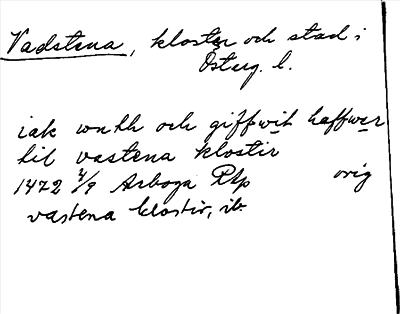 Vadstena, kloster och stad i
Österg. l.
iak wnth och giffwit haffwer
til vastena klostir
1472 4/9 Arboga Prp orig
vastena klostir, ib.